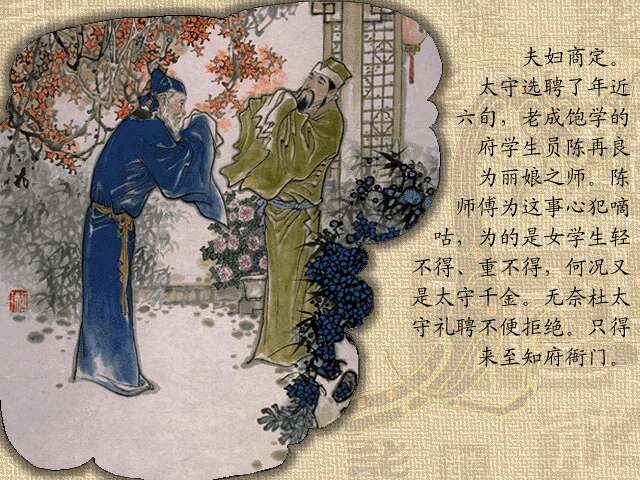 夫妇商定。
太守选聘了年近
六旬，老成饱学的
府学生员陈再良
为丽娘之师。陈
师傅为这事心犯嘀
咕，为的是女学生轻
不得、重不得，何况又
是太守千金。无奈杜太
守礼聘不便拒绝。只得
来至知府衙门。